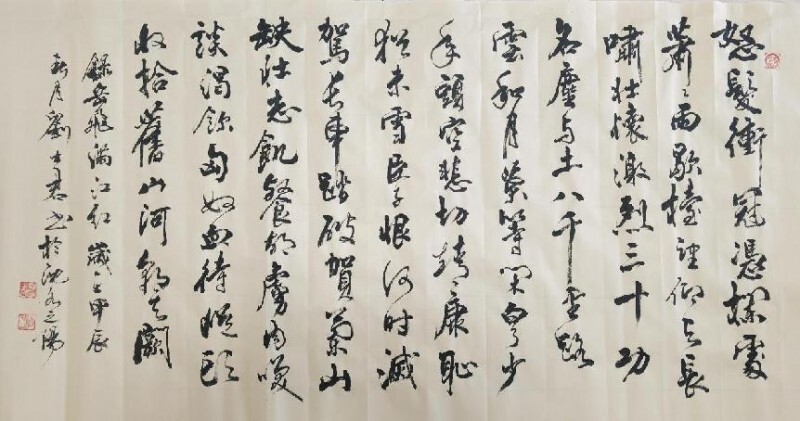 怒髮衝冠憑欄處
蕭〻雨歇擡望仰天長
嘯壯懷激烈三十功
名塵与土八千里路
雲和月莫等閑白少
年頭空悲切靖康恥
猶未雪臣子恨何时滅
駕長車踏破賀蘭山
缺壯志飢餐胡虜肉笑
談渴飲匈奴血待從頭
收拾舊山河朝天闕
錄岳飛滿江紅歲在甲辰
月劉士君书於沈水之陽